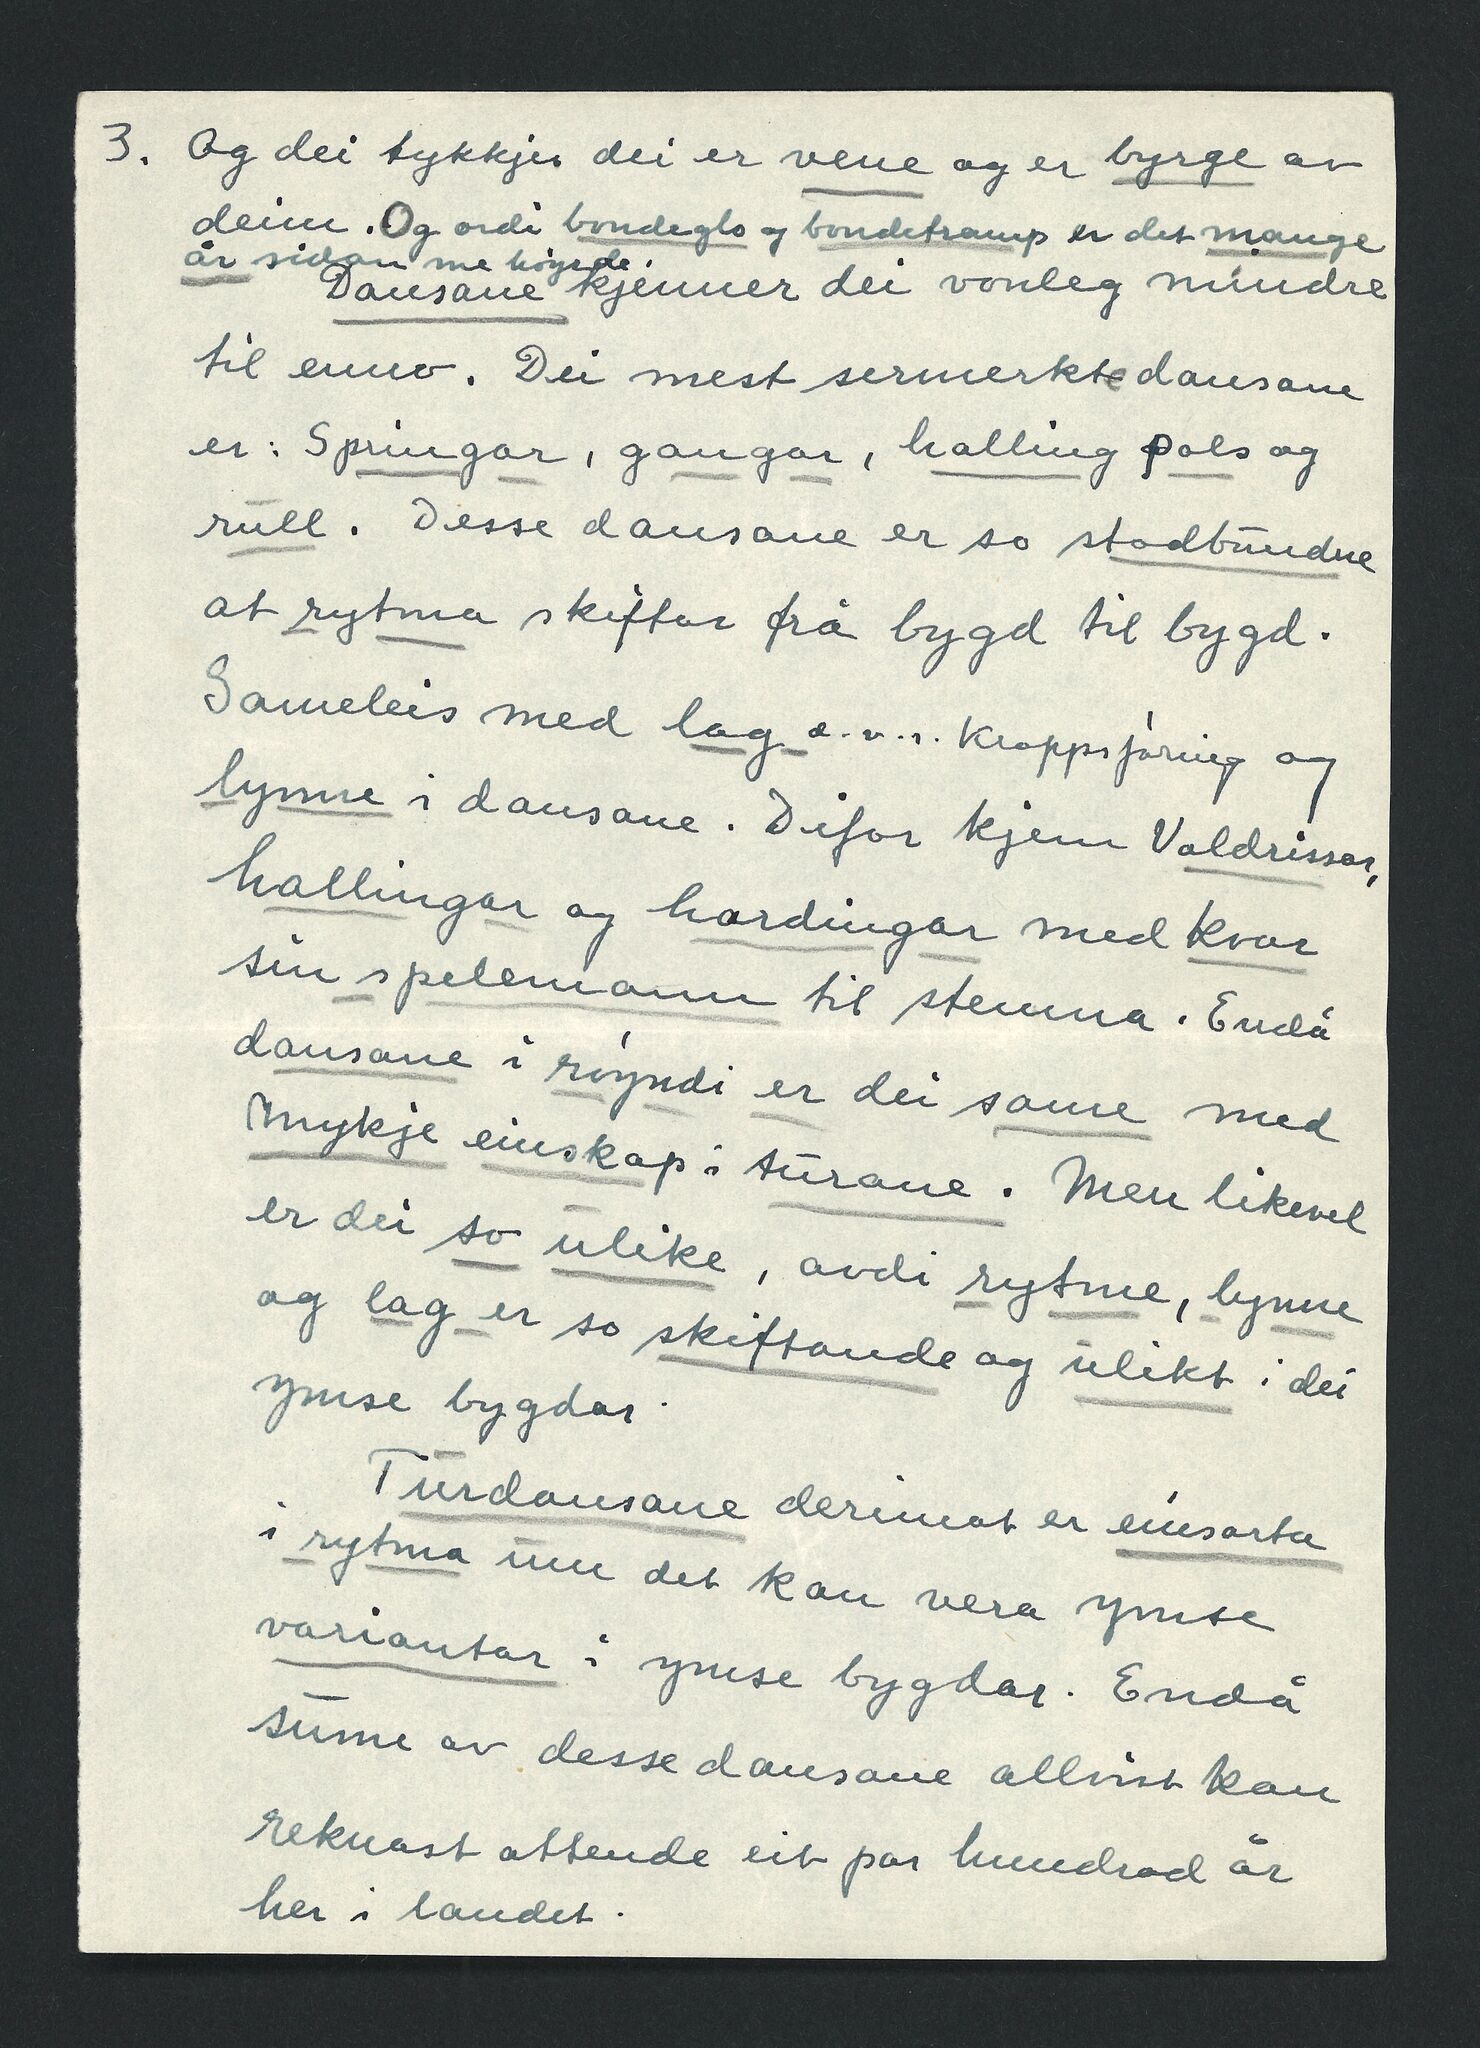 3. Og dei tykkjer dei er vene og er byrge av
deim. Og ordi bondeglo og bondetramp er det mange
år sidan me höyrde.
Dansane kjenner dei vonleg mindre
til enno. Dei mest sermerkte dansane
er: Springar, gangar, halling pols og
rull. Desse dansane er so stadbundne
at rytma skiftar frå bygd til bygd.
Sameleis med lag d.v.s. kroppsföring og
lynne i dansane. Difor kjem Valdrissar,
hallingar og hardingar med kvar
sin spelemann til stemna. Endå
dansane i röyndi er dei same med
mykje einskap i turane. Men likevel
er dei so ulike, avdi rytme, lynne
og lag er so skiftande og ulikt i dei
ymse bygdar.
Turdansane derimot er einsarta
i rytma um det kan vera ymse
variantar i ymse bygdar. Endå
sume av desse dansane allvist kan
reknast attende eit par hundrad år
her i landet.